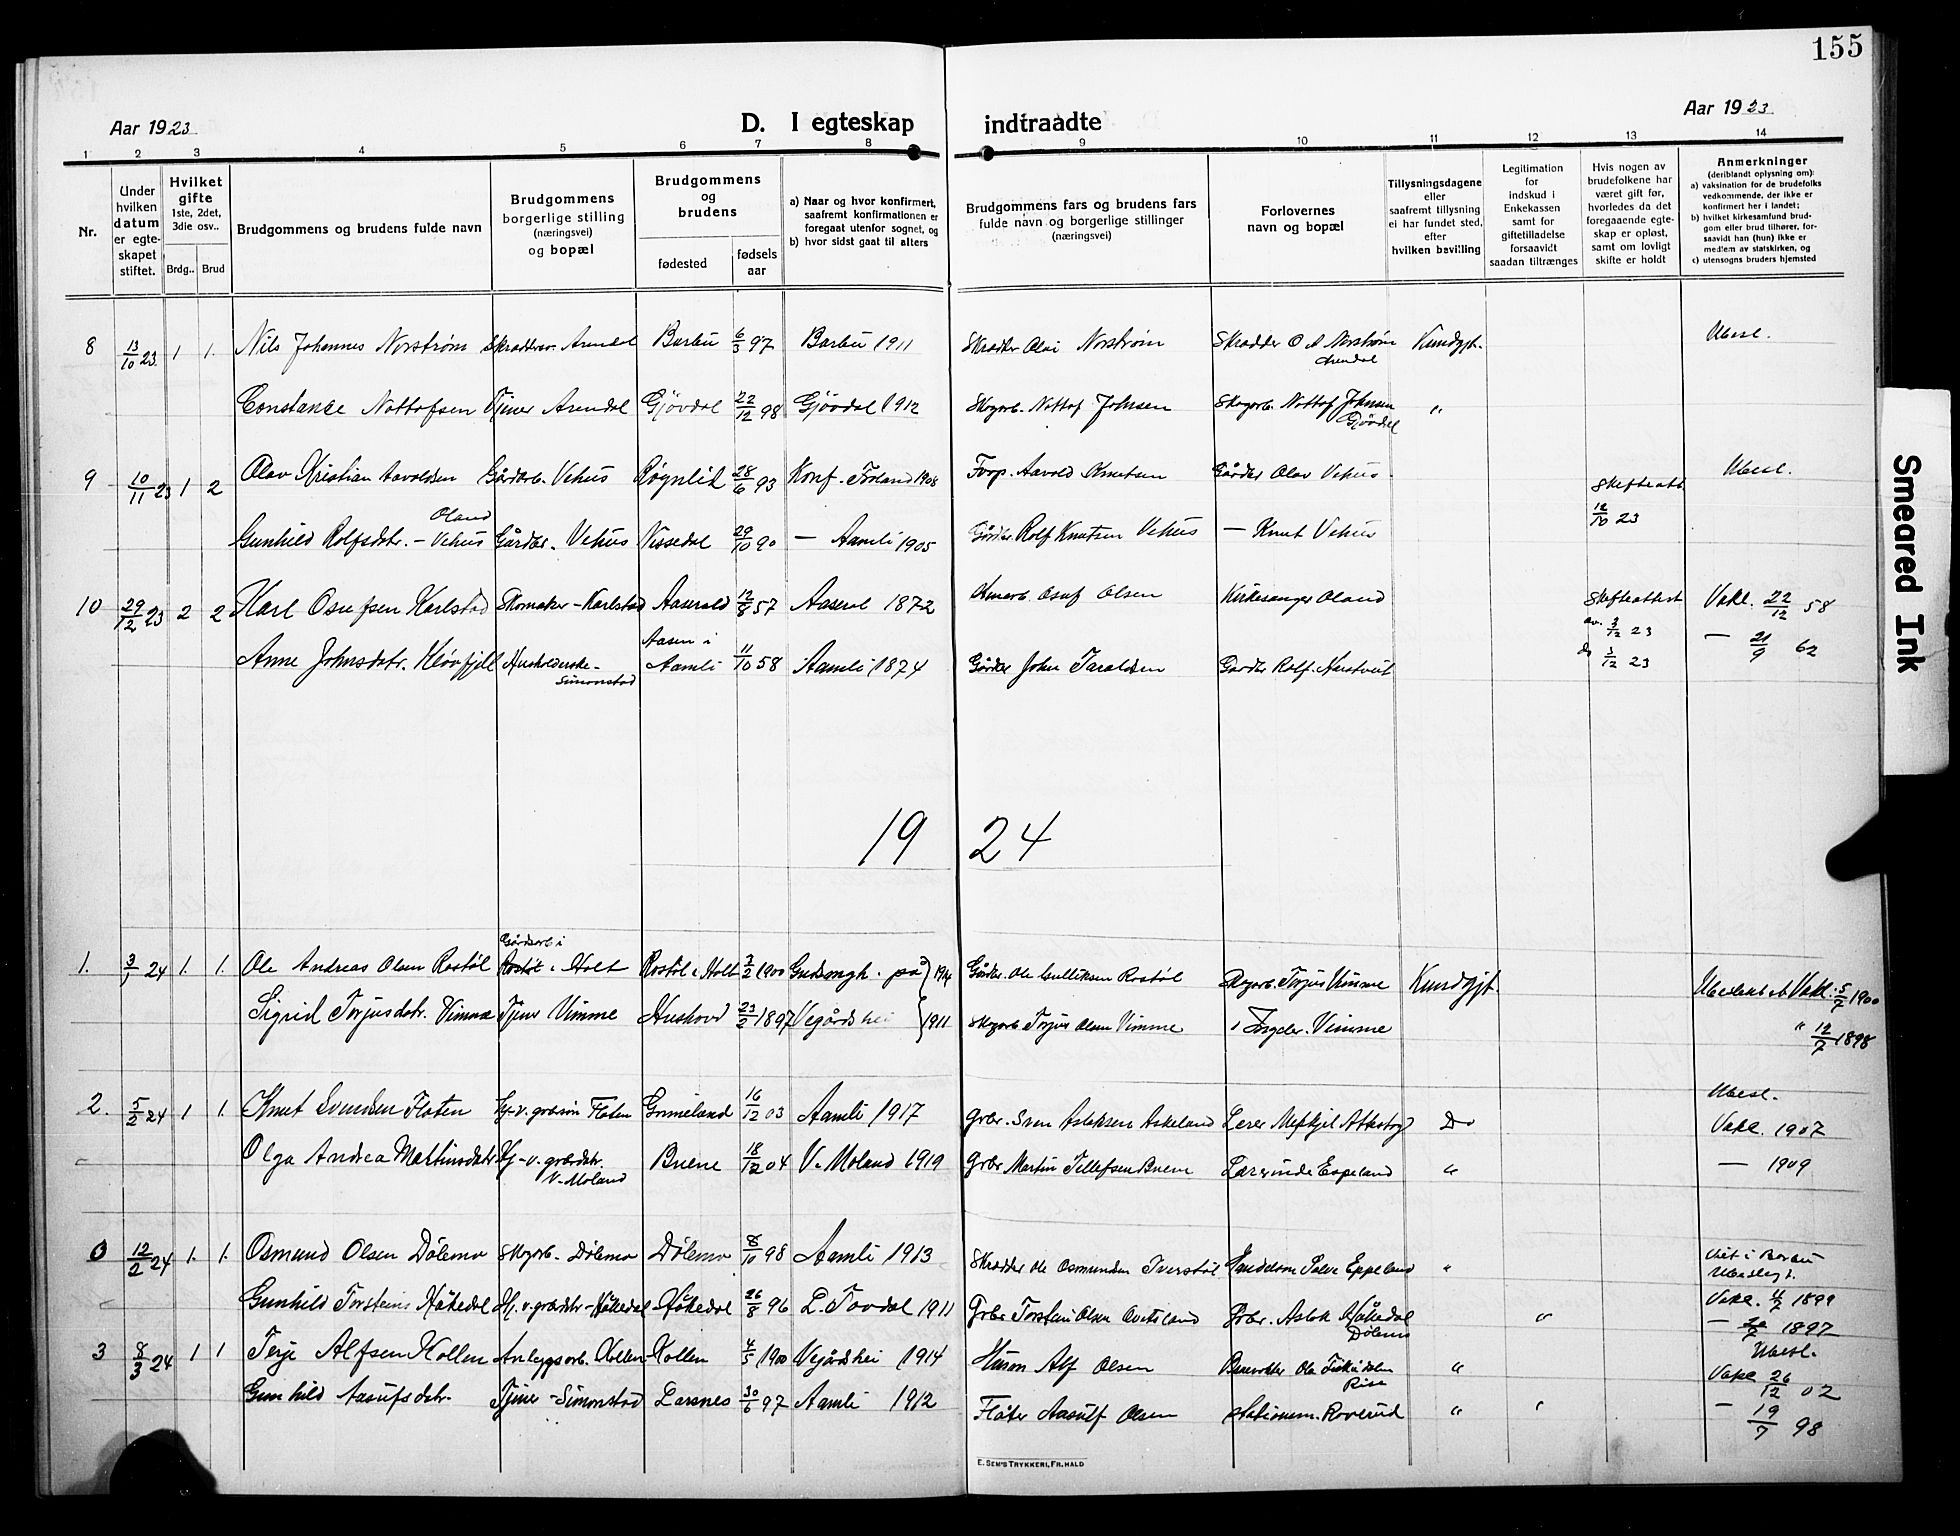 155
Aar 1923
D. I egteskap indtraadte
Aar 1923
1 2 3 4 5 6 7 8 9 10 11 12 13 14
Nr.
Under hvilken datum er egteskapet stiftet.
Hvilket gifte 1ste, 2det, 3die osv..
Brdg..
Brud
Brudgommens og brudens fulde navn
Brudgommens borgerlige stilling (næringsvei) og bopæl
Brudgommens og brudens
fødested
fødsels aar
a) Naar og hvor konfirmert, saafremt konfirmationen er foregaat utenfor sognet, og
b) hvor sidst gaat til alters
Brudgommens fars og brudens fars fulde navn og borgerlige stillinger (næringsvei)
Forlovernes navn og bopæl
Tillysningsdagene eller saafremt tillysning ei har fundet sted, efter hvilken bevilling
Legitimation for indskud i Enkekassen samt for giftetilladelse forsaavidt saadan tiltrænges
Hvis nogen av brudefolkene har været gift før, hvorledes da det foregaaende egteskap er opløst, samt om lovligt skifte er holdt
Anmerkninger (deriblandt oplysning om):
a) vaksination for de brudefolks vedkommende, der ikke er konfirmert her i landet;
b) hvilket kirkesamfund brudgom eller brud tilhører, forsaavidt han (hun) ikke er medlem av statskirken, og
c) utensogns bruders hjemsted
8 13/10 23 1 1. Nils Johannes Norstrøm Skræddersv. Arendal Barbu 6/3 97 Barbu 1911 Skrædder Olai Norstrøm Skrædder O A Norstrøm Arendal Kundgjt. Ubesl.
Constance Nottofsen Tjener Arendal Gjövdal 22/12 98 Gjövdal 1912 Skogarb. Nottof Johnsen Skogarb. Nottof Johnsen Gjövdal "
9 10/11 23 1 2 Olav Kristian Aavoldsen Gårdarb. Vehus Røgnlid 28/6 93 Konf. Froland 1908 Forp. Aavold Knutsen Gårdbr Olav Vehus Skifteatt. 12/10 23 Ubesl.
Gunhild Rolfsdtr. - Oland Vehus Gårdbr. Vehus Nissedal 29/10 90 — Aamli 1905 Gårdbr Rolf Knutsen Vehus — Knut Vehus
10 29/12 23 2 2 Karl Osufsen Karlstad Skomaker - Karlstad Aaseral 12/8 57 Aaseral 1872 Osuf Olsen Kirkesanger Oland Skifteattest av. 3/12 23 Vakc. 22/12 58
Anne Johnsdtr. Kløvfjell Husholderske - Simonstad Aasen i Aamli 11/10 58 Aamli 1874 Gårdbr John Taraldsen Gardbr Rolf Do 3/12 23 — 21/9 62
19 24
1. 3/1 24 1. 1. Ole Andreas Olsen Rostöl Gårdsarb i Rostöl i Holt Rostöl i Holt 7/2 1900 på 1914 Gårdbr. Ole Gulliksen Rostöl Skogarb. Torjus Vimme Kundgjt. Vakc. 5/7 1900
Sigrid Torjusdtr. Vimme Tjener Vimme Aushovd 23/2 1897 Vegårdshei 1911 Skogarb Torjus Olsen Vimme Vimme " 12/7 1898
2. 5/2 24 1 1. Knut Svendsen Flaten Hj. v. gbrsøn Flaten Grimeland 16/12 03 Aamli 1917 Grbr. Sven Aslaksen Askeland Lærer Do Ubesl. Vakc. 1907
Olga Andrea Martinsdatter Hj-v. grbrdtr. V-Moland Buene 18/12 04 V-Moland 1919 Grbr Martin Tellefsen Buene Lærerinde Espeland " — 1909
0 12/2 24 1. 1. Osmund Olsen Dölemo Skogarb. Dölemo Dölemo 8/10 98 Aamli 1913 Skrædder Ole Osmundsen Iverstöl Salve Eppeland " Viet i Barbu Ubeslegt.
Gunhild Torsteins Håkedal Hj. v. grbrdtr - Håkedal Håkedal 26/8 96 L. Tovdal 1911 Grbr Torstein Olsen Grbr. Aslak Håkedal Dölemo " Vakc. 4/7 1899 — 20/7 1897
3 8/3 24 1 1 Terje Alfsen Kollen Anleggsarb. Kollen Kollen 4/5 1900 Vegårdshei 1914 Husm Alf Olsen Ole Risø " Ubesl. Vakc 26/12 02
Gunhild Aasufsdtr. Tjener - Simonstad Larsnes 30/6 97 Aamli 1912 Fløter Aasulf Olsen Stationsm. Roverud " " — 19/7 98
E. Sem's Trykkeri, Fr.hald
Smeared Ink